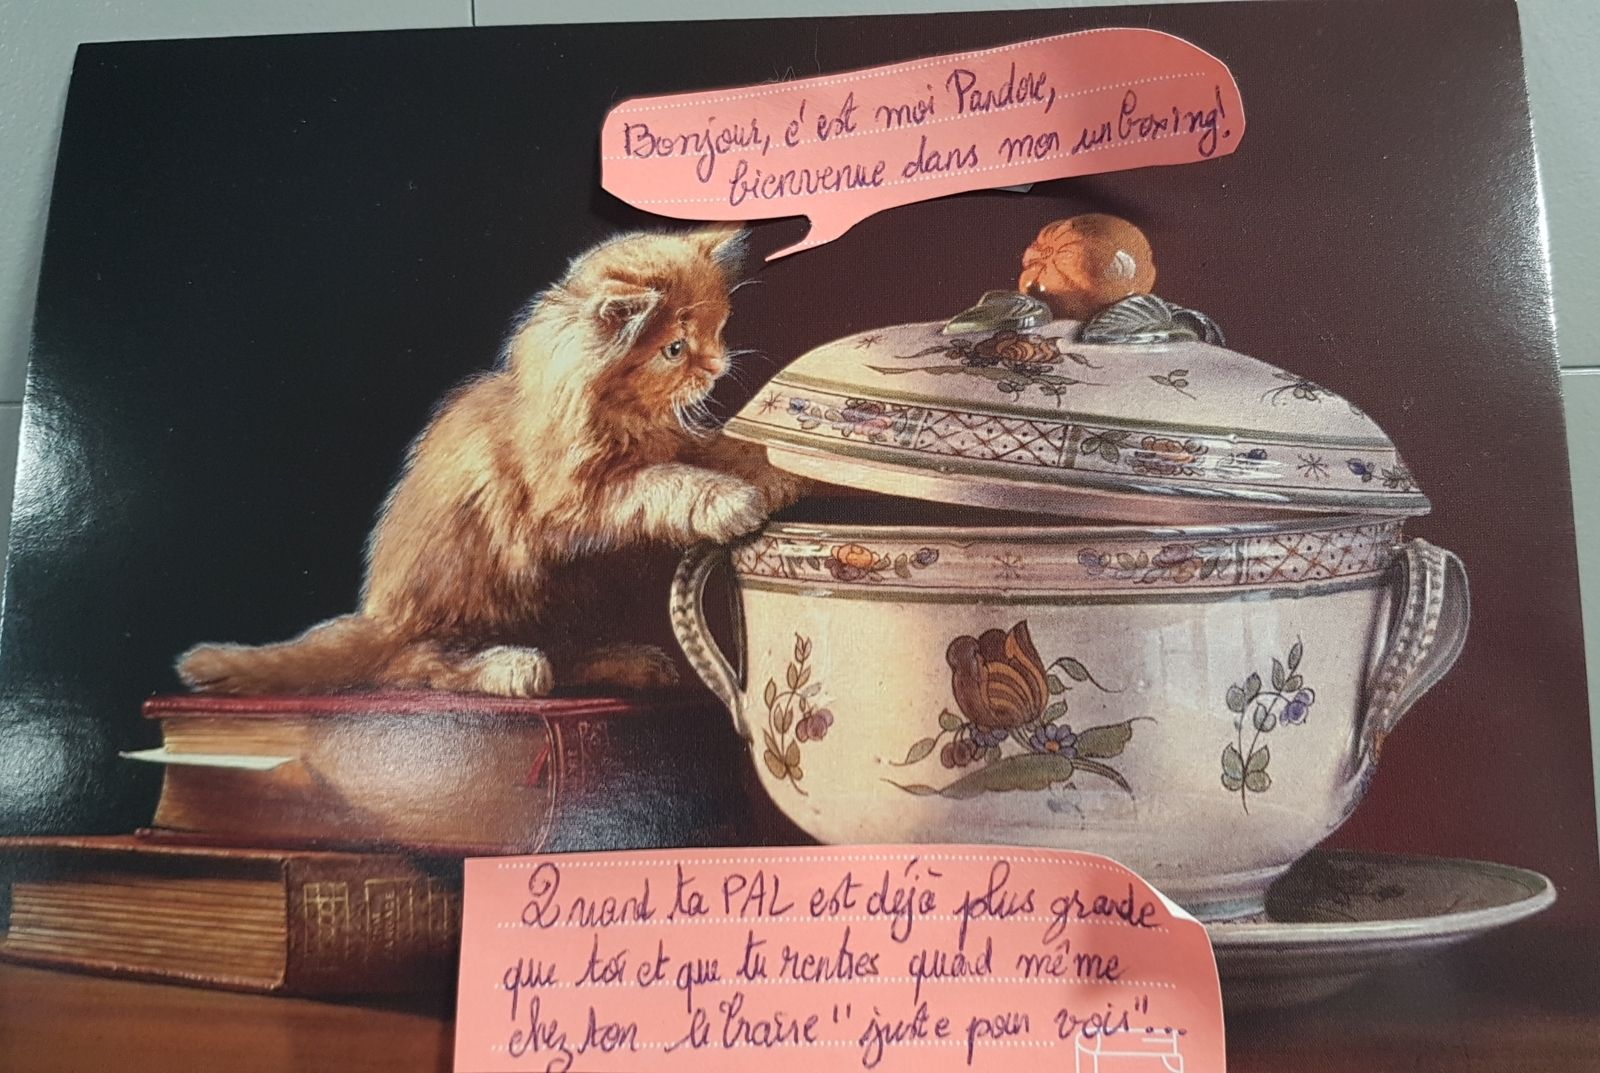 Bonjour, c'est moi Pandore,
bienvenue dans mon unboxing!
Quand ta PAL est déjà plus grande
que toi et que tu rentres quand même
chez ton libraire "juste pour voir"...